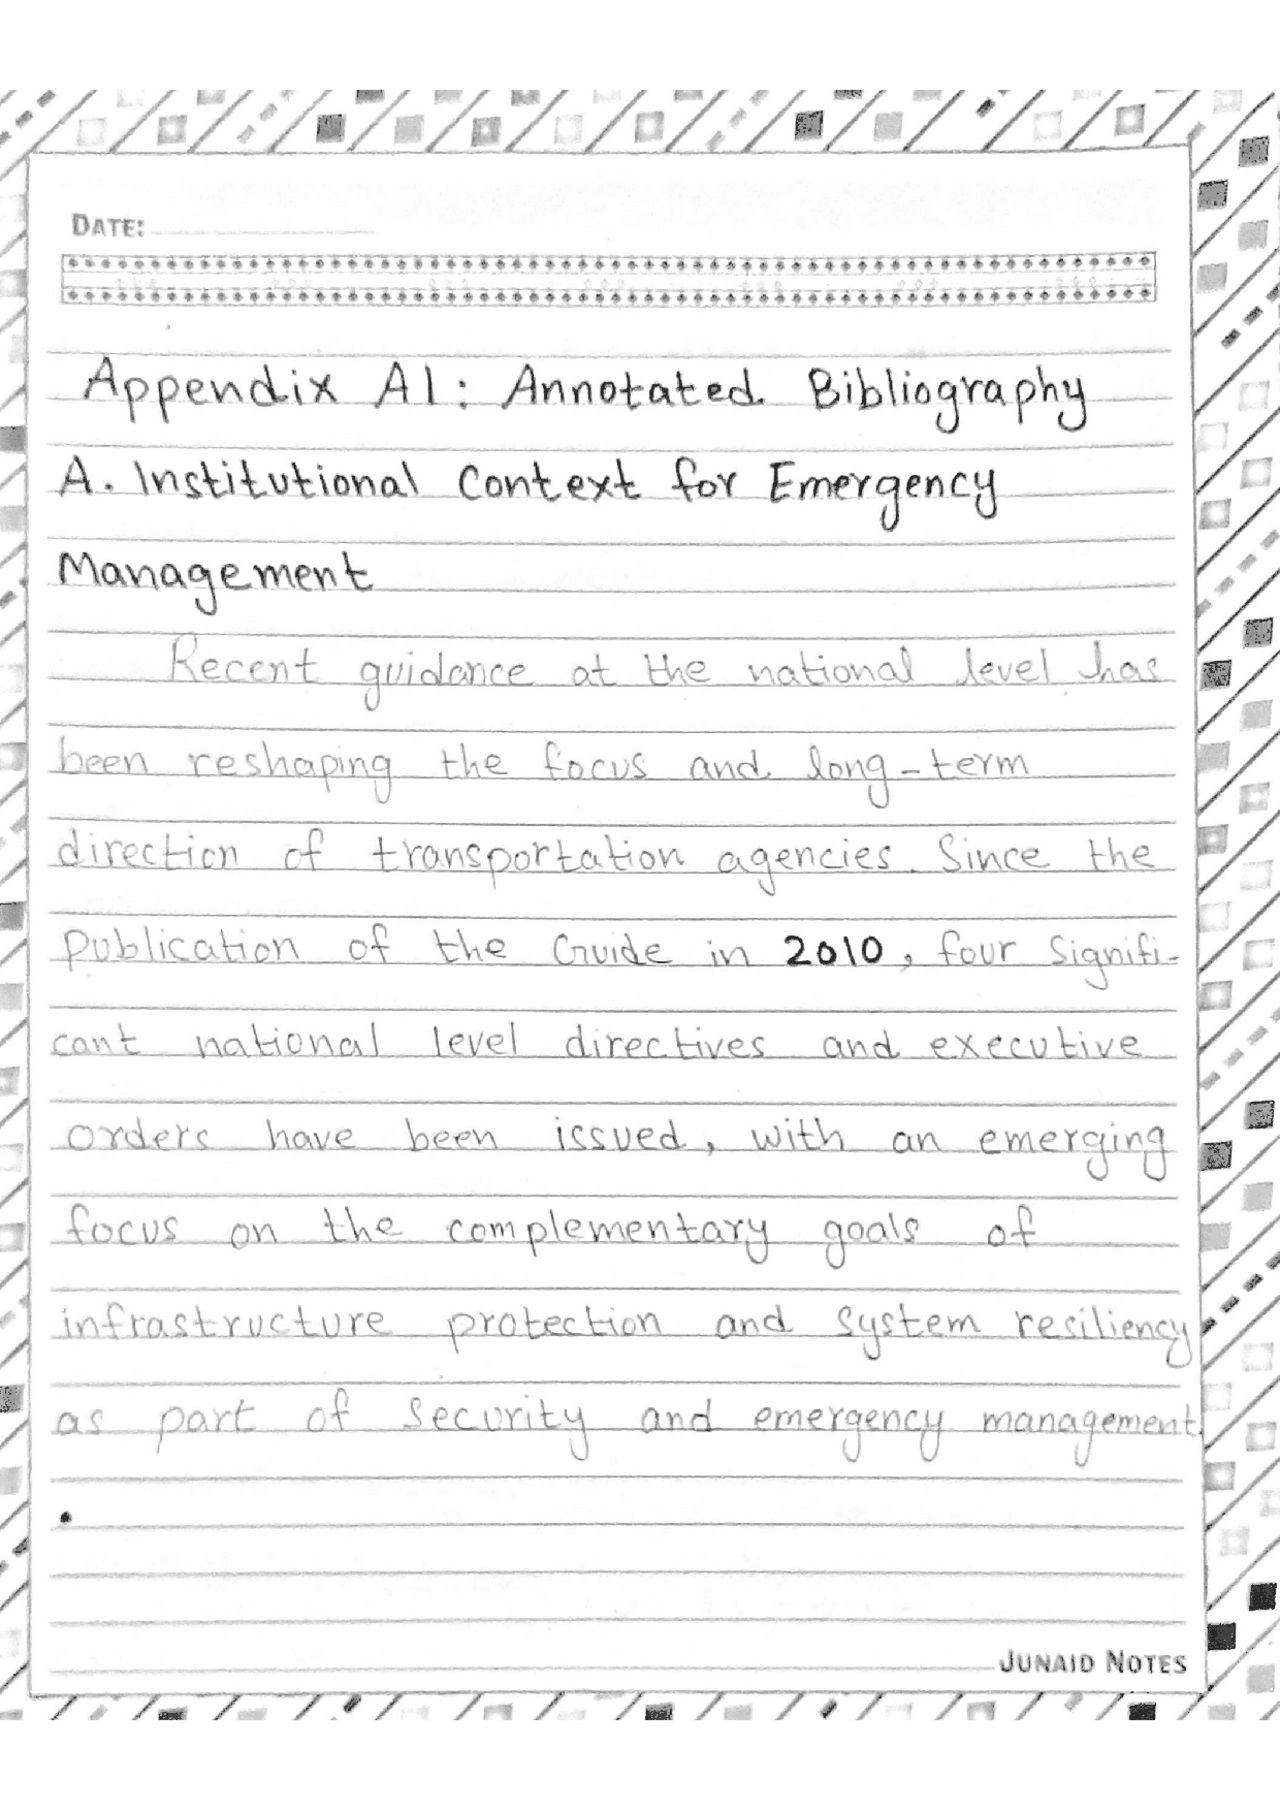 DATE:
Appendix A1: Annotated Bibliography
A. Institutional Context for Emergency
Management
Recent guidance at the national level has
been reshaping the focus and long-term
direction of transportation agencies. Since the
publication of the Guide in 2010, four signifi-
cant national level directives and executive
orders have been issued, with an emerging
focus on the complementary goals of
infrastructure protection and system resiliency
as part of security and emergency management.
JUNAID NOTES